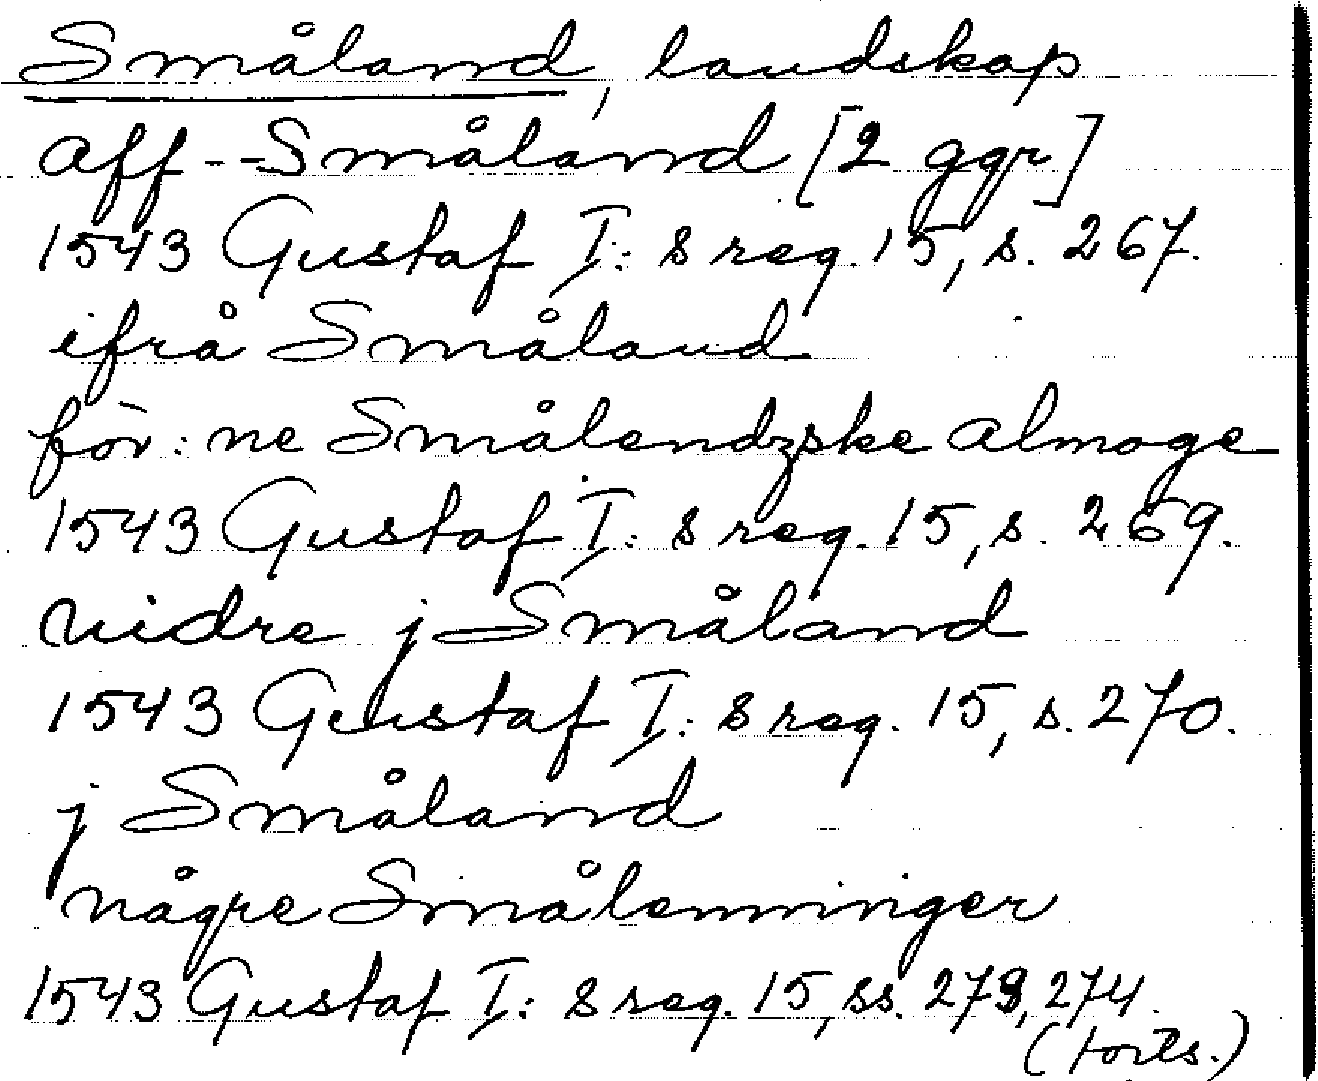 Småland, landskap
aff--Småland [2 ggr]
1543 Gustaf I:s reg. 15, s. 267.
ifrå Småland
för:ne Smålendzske almoge
1543 Gustaf I:s reg. 15, s. 269.
nidre j Småland
1543 Gustaf I:s reg. 15, s. 270.
j Småland
någre Smålenninger
1543 Gustaf I:s reg. 15, ss. 273, 274.
(forts.)